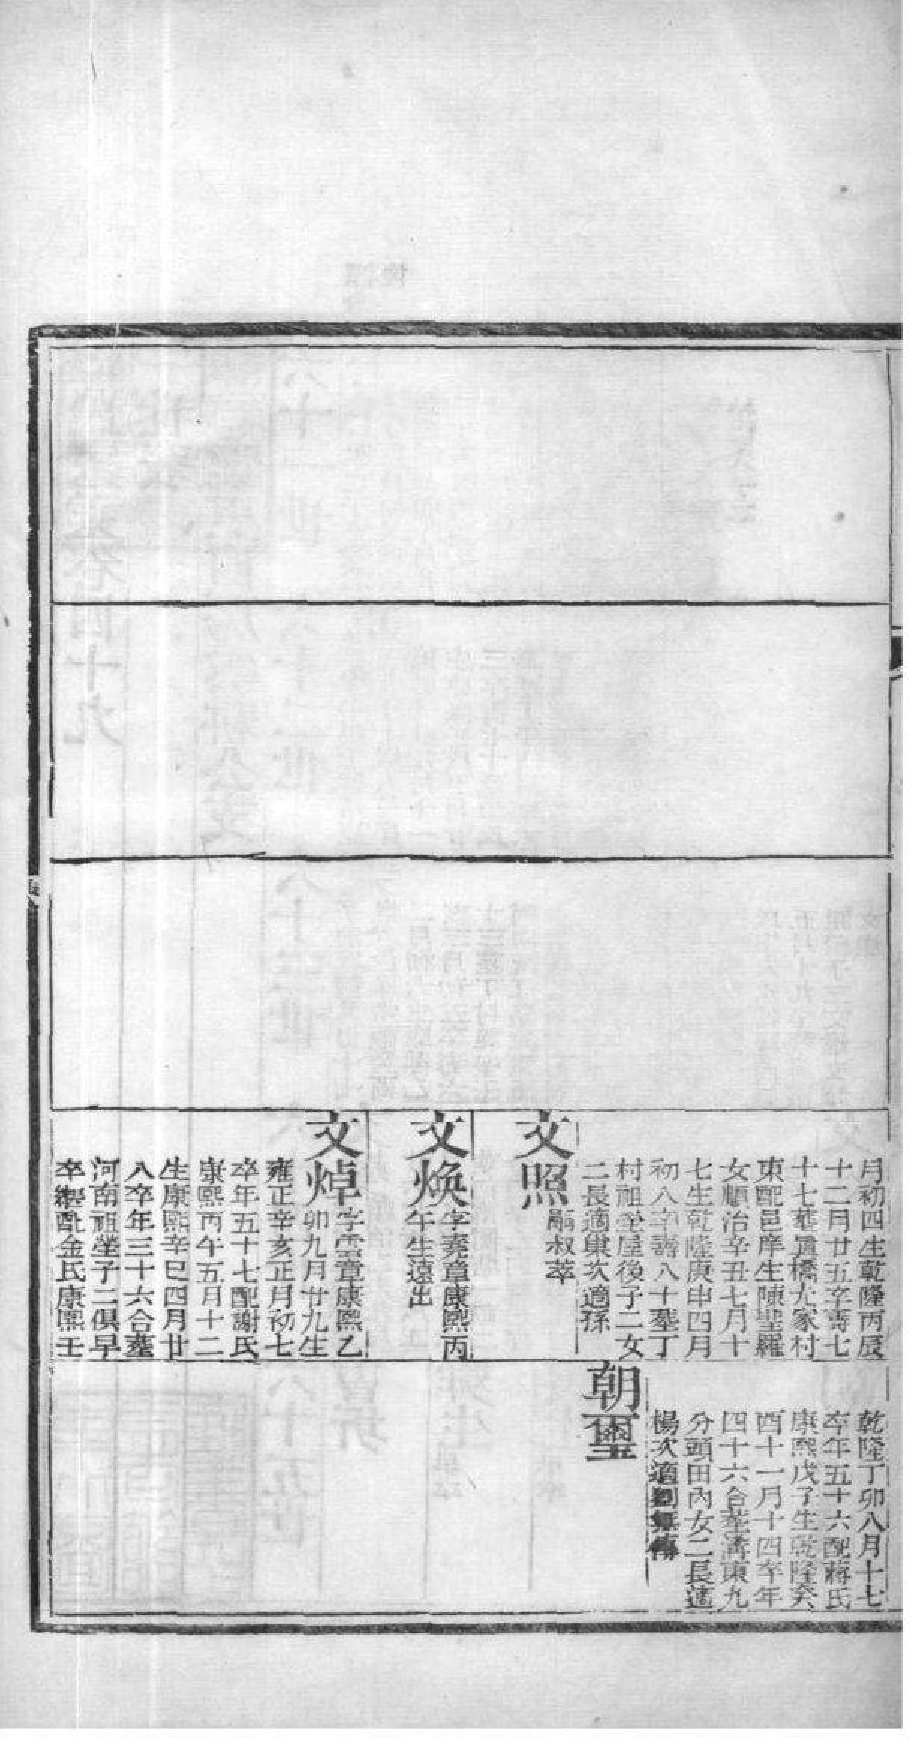 月初四生乾隆丙辰
十二月廿五卒壽七
十七葬置橋尤家村
東配邑庠生陳聖羅
女順治辛丑七月十
七生乾隆庚申四月
初八卒壽八十葬丁
村祖塋屋後子二女
二長適巢次適孫
文照
嗣叔萃
文焕
字堯章康熙丙
午生遠出
文焯
字雲章康熙乙
卯九月廿九生
雍正辛亥正月初七
卒年五十七配謝氏
康熙丙午五月十二
生康熙辛巳四月廿
八卒年三十六合葬
河南祖塋子二俱早
卒繼配金氏康熙壬
乾隆丁卯八月十七
卒年五十六配蔣氏
康熙戊子生乾隆癸
酉十一月十四卒年
四十六合葬溝東九
分頭田內女二長適
楊次適劉無傳
朝璽